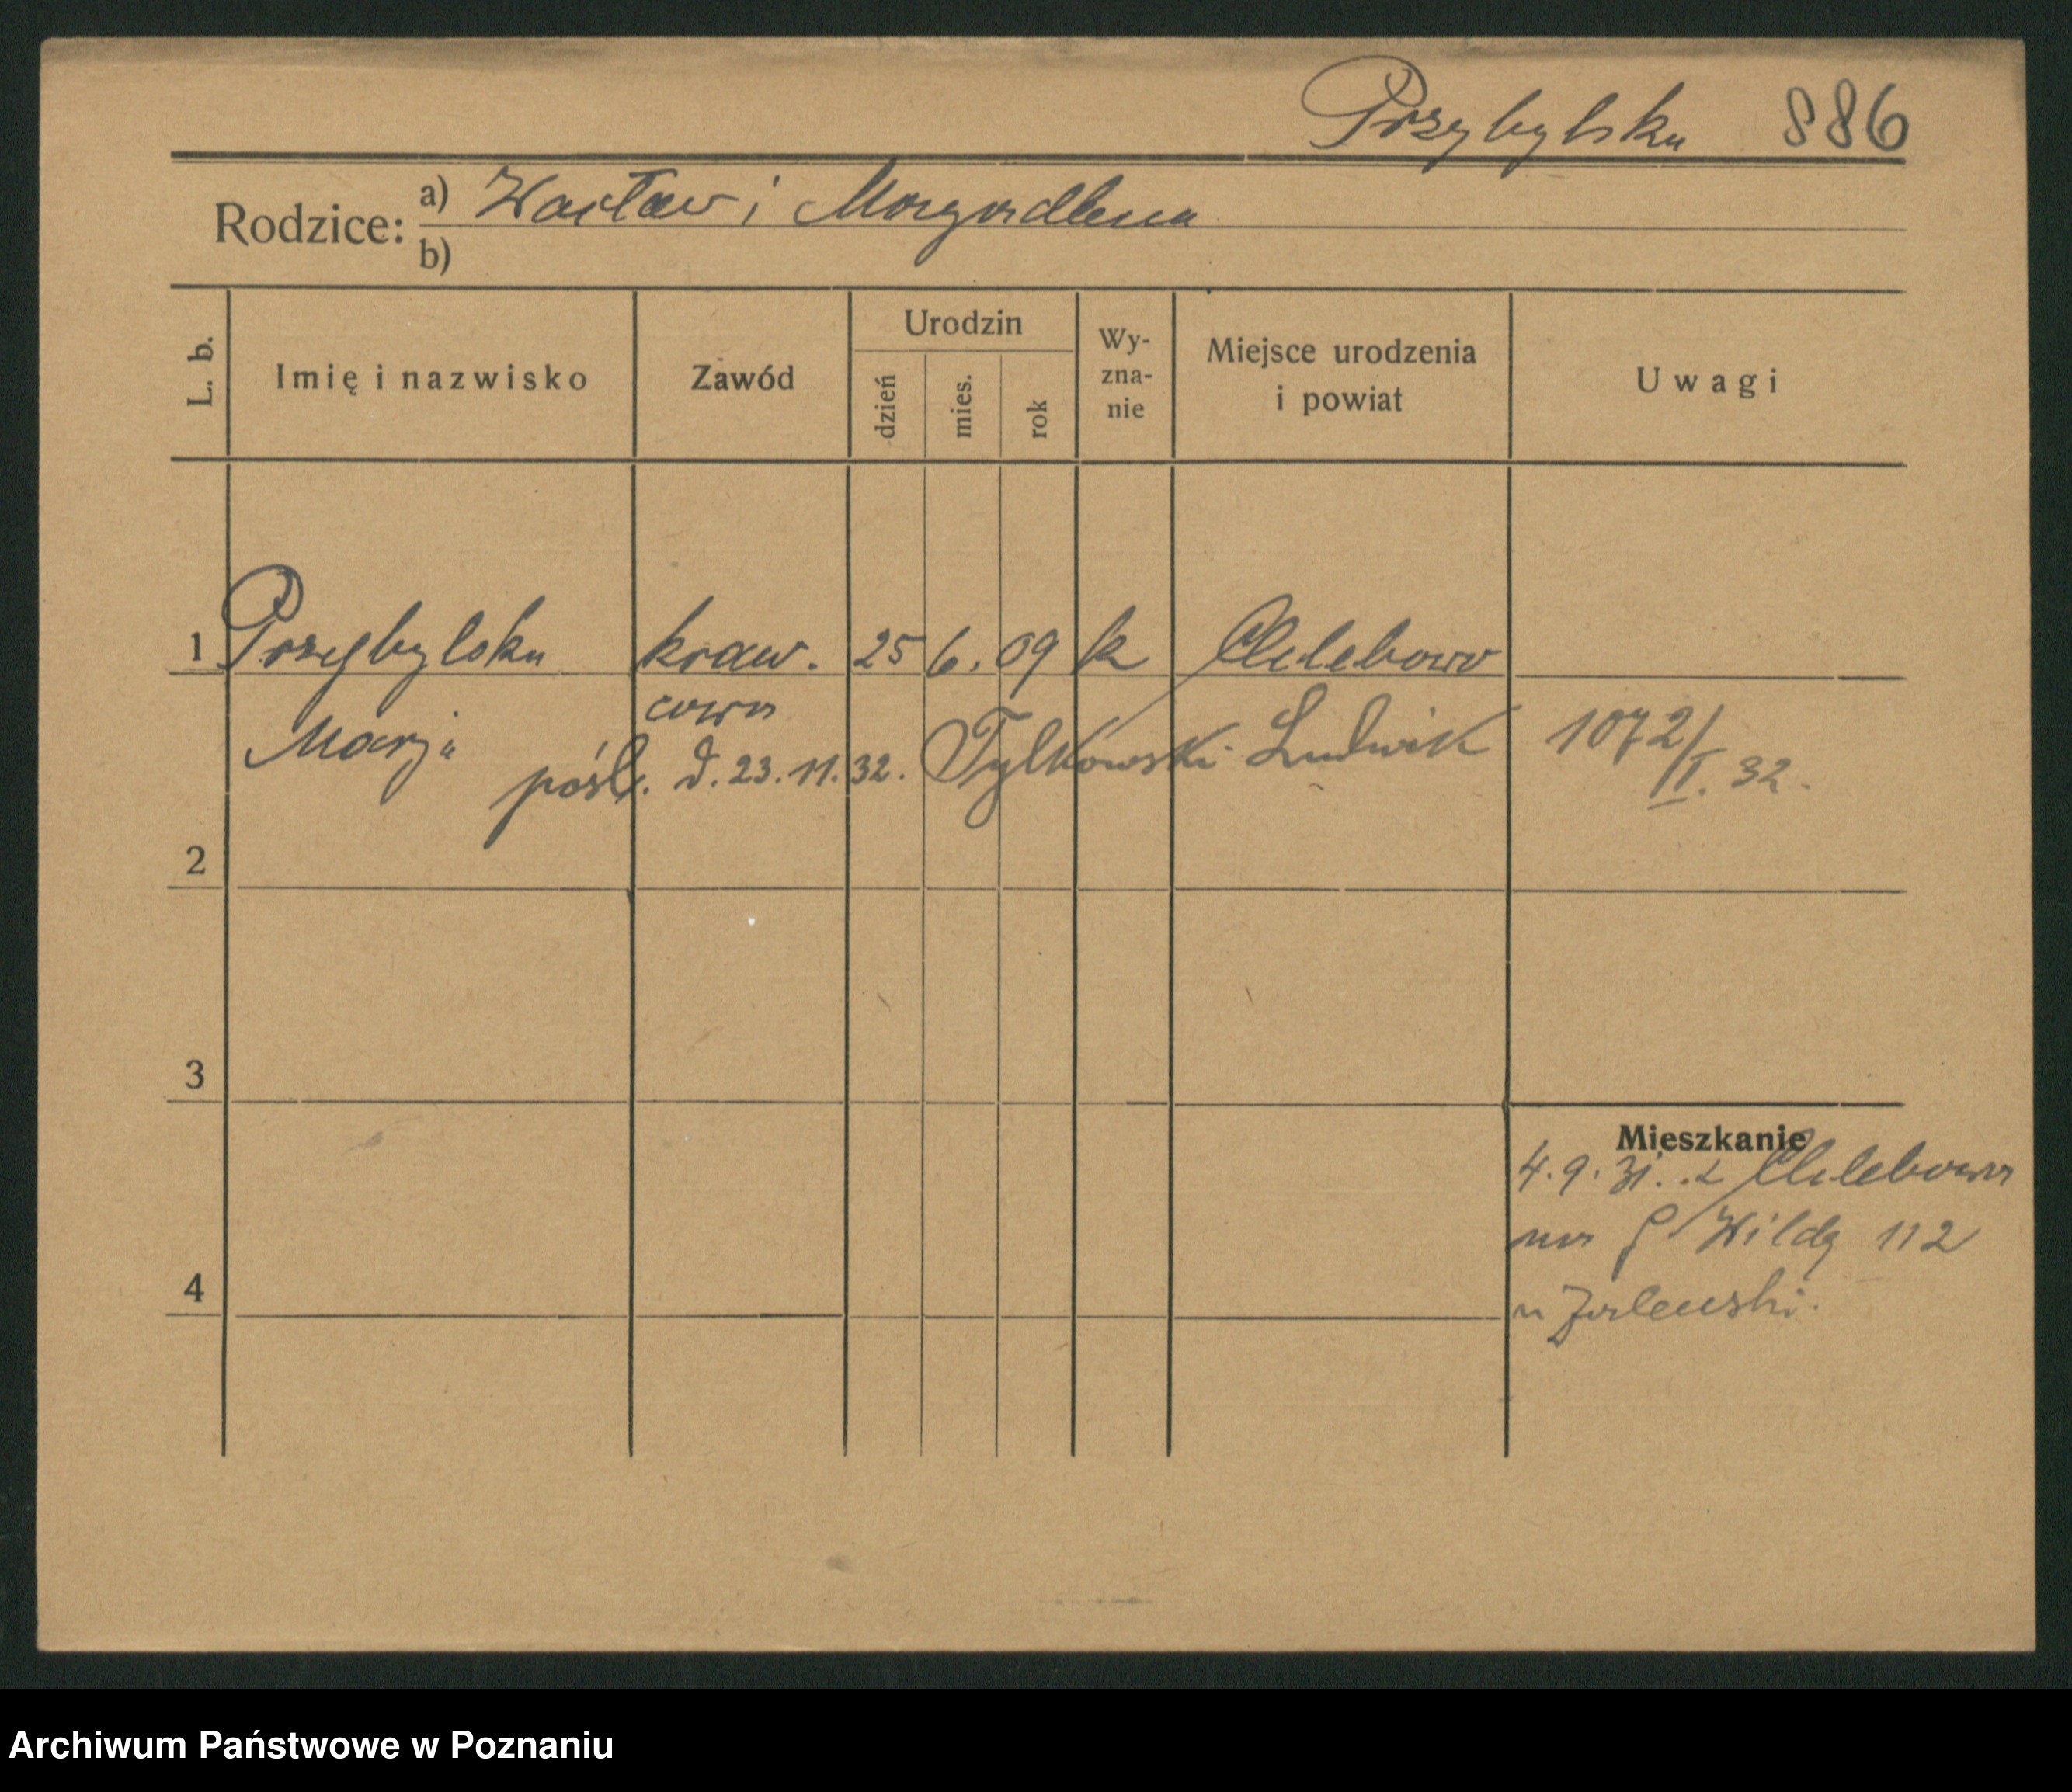 Przybylska 886
Rodzice: a) Wacław i Magdalena
b)
L. b. Imię i nazwisko Zawód Urodzin dzień mies. rok Wy-zna-nie Miejsce urodzenia i powiat Uwagi
1 Przybylska kraw. 25 6. 09 k Chlebowo
Marja cowa
pośl. d. 23.11.32. Tylkowski Ludwik 1072/II. 32.
2
3
Mieszkanie
4.9.31. z Chlebowa
na G Wildą 112
4
u Zalewski.
Archiwum Państwowe w Poznaniu